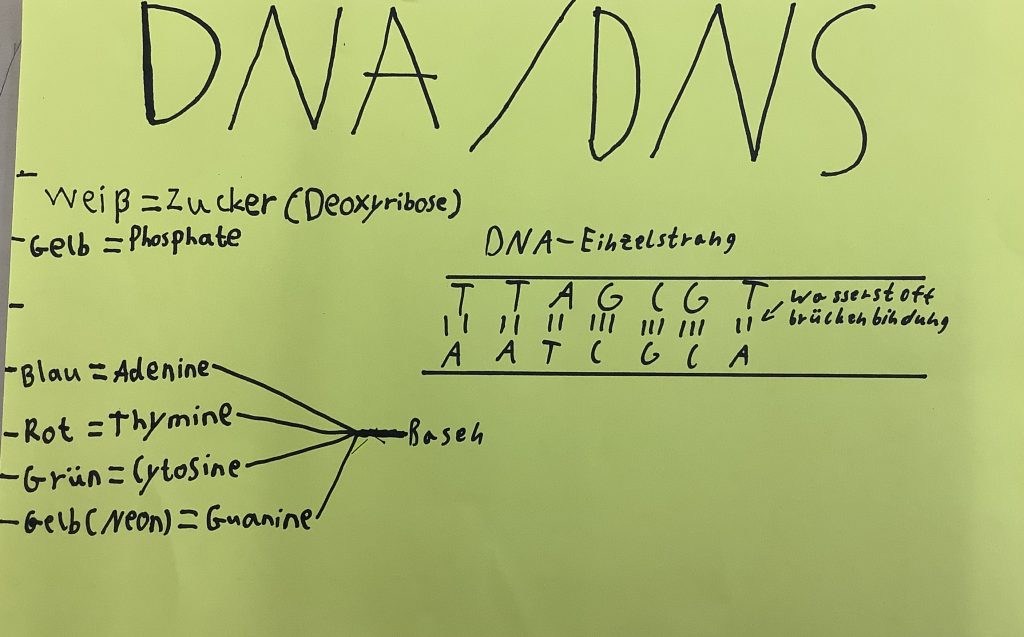 DNA/DNS
Weiß = Zucker (Deoxyribose)
- Gelb = Phosphate
DNA-Einzelstrang
T T A G C G T
Wasserstoff
brückenbindung
A A T C G C A
- Blau = Adenine
- Rot = Thymine
Basen
- Grün = Cytosine
- Gelb (Neon) = Guanine